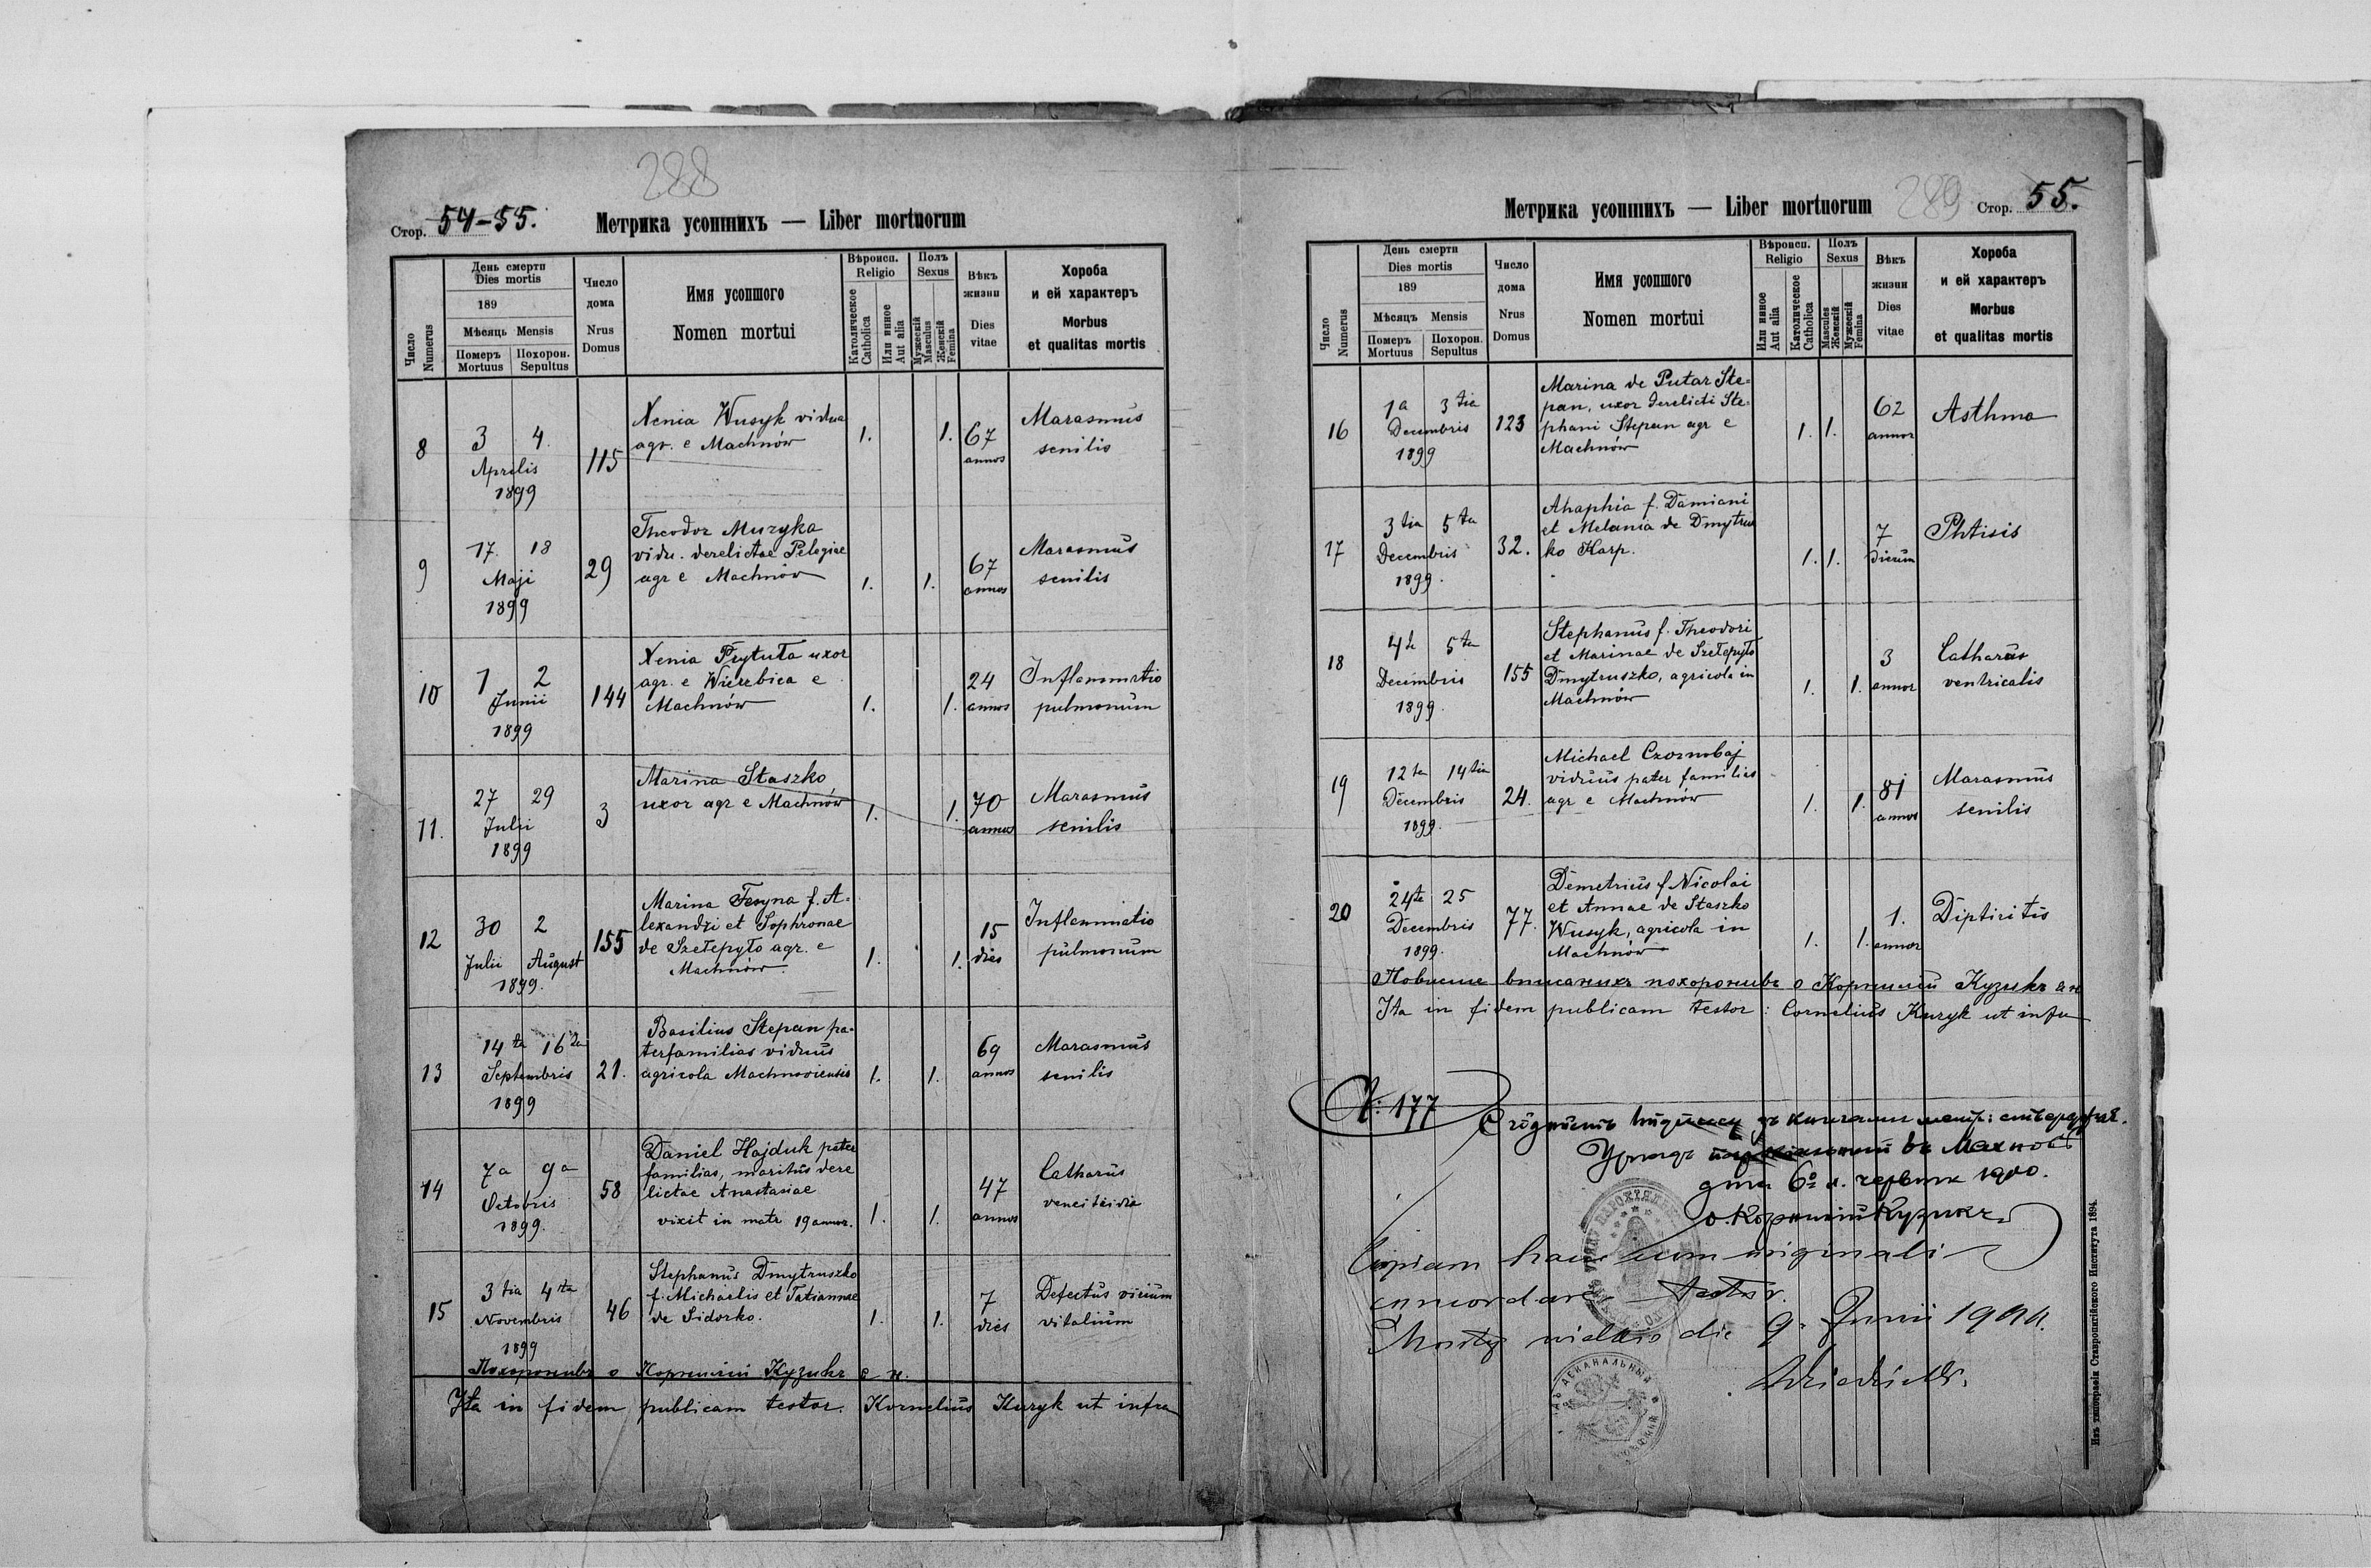 288
Стор. 54-55. Метрика усопшихъ — Liber mortuorum
Число Numerus
День смерти
Dies mortis
189
Мѣсяць Mensis
Померъ Mortuus
Похорон. Sepultus
Число дома
Nrus Domus
Имя усопшого
Nomen mortui
Вѣроисп.
Religio
Католическое Catholica
Или инное Aut alia
Полъ
Sexus
Мужескій Masculus
Женскій Femina
Вѣкъ жизни
Dies vitae
Хороба
и ей характеръ
Morbus
et qualitas mortis
8
3 4
Aprilis
1899
115
Xenia Wusyk vidua
agr. e Machnów
1. 1.
67
annos
Marasmus
senilis
9
17. 18
Maji
1899
29
Theodor Muzyka
vidu. derelictae Pelegiae
agr e Machnów
1. 1.
67
annos
Marasmus
senilis
10
1 2
Junii
1899
144
Xenia Prytuła uxor
agr. e Wierzbica e
Machnów
1. 1.
24
annos
Inflammatio
pulmonum
11.
27 29
Julii
1899
3
Marina Staszko
uxor agr e Machnów
1. 1.
70
annos
Marasmus
senilis
12
30 2
Julii August
1899.
155
Marina Fesyna f. A-
lexandri et Sophronae
de Szełepyło agr. e
Machnów
1. 1.
15
dies
Inflammatio
pulmonum
13
14ta 16ta
Septembris
1899
21.
Basilius Stepan pa-
terfamilias viduus
agricola Machnoviensis
1. 1.
69
annos
Marasmus
senilis
14
7a 9a
Octobris
1899.
58
Daniel Hajduk pater
familias, maritus dere
lictae Anastasiae
vixit in matr 19 annos.
1. 1.
47
annos
Catharus
15
3tia 4ta
Novembris
1899
46
Stephanus Dmytruszko
f. Michaelis et Tatiannae
de Sidorko.
1. 1.
7
dies
Defectus virium
vitalium
Похоронивъ о Корнилій Кузикъ
Ita in fidem publicam testor. Kornelius Kuzyk ut infra
289
Метрика усопшихъ — Liber mortuorum Стор. 55.
Число Numerus
День смерти
Dies mortis
189
Мѣсяцъ Mensis
Померъ Mortuus
Похорон. Sepultus
Число дома
Nrus Domus
Имя усопшого
Nomen mortui
Вѣроисп.
Religio
Или инное Aut alia
Католическое Catholica
Полъ
Sexus
Mascules Женскій
Мужескій Femina
Вѣкъ жизни
Dies vitae
Хороба
и ей характеръ
Morbus
et qualitas mortis
16
1a 3tia
Decembris
1899
123
Marina de Putar Ste-
pan, uxor derelicti Ste-
phani Stepan agr e
Machnów
1. 1.
62
annos
Asthma
17
3tia 5ta
Decembris
1899.
32.
Ahaphia f. Damiani
et Melania de Dmytrus
ko Karp.
1. 1.
7
dierum
Phtisis
18
4ta 5ta
Decembris
1899.
155
Stephanus f. Theodori
et Marinae de Szełepyło
Dmytruszko, agricola in
Machnów
1. 1.
3
annos
Catharus
ventricalis
19
12ta 14tia
Decembris
1899.
24.
Michael Czornobaj
viduus pater familias
agr e Machnów
1. 1.
81
annos
Marasmus
senilis
20
24ta 25
Decembris
1899.
77.
Demetrius f Nicolai
et Annae de Staszko
Wusyk, agricola in
Machnów
1. 1.
1.
annos
Diptiritis
вписанихъ похоронивъ о Корнилій Кузикъ
Ita in fidem publicam testor: Cornelius Kuzyk ut infra
N: 177
Урядъ въ Махновѣ
дня 6о л. червня 1900.
о. Корнилій Кузикъ
Copiam hanc cum originali
concordare testor.
Mosty wielkie die 9. Junii 1900.
Изъ типографіи Ставропигійского Института 1894.